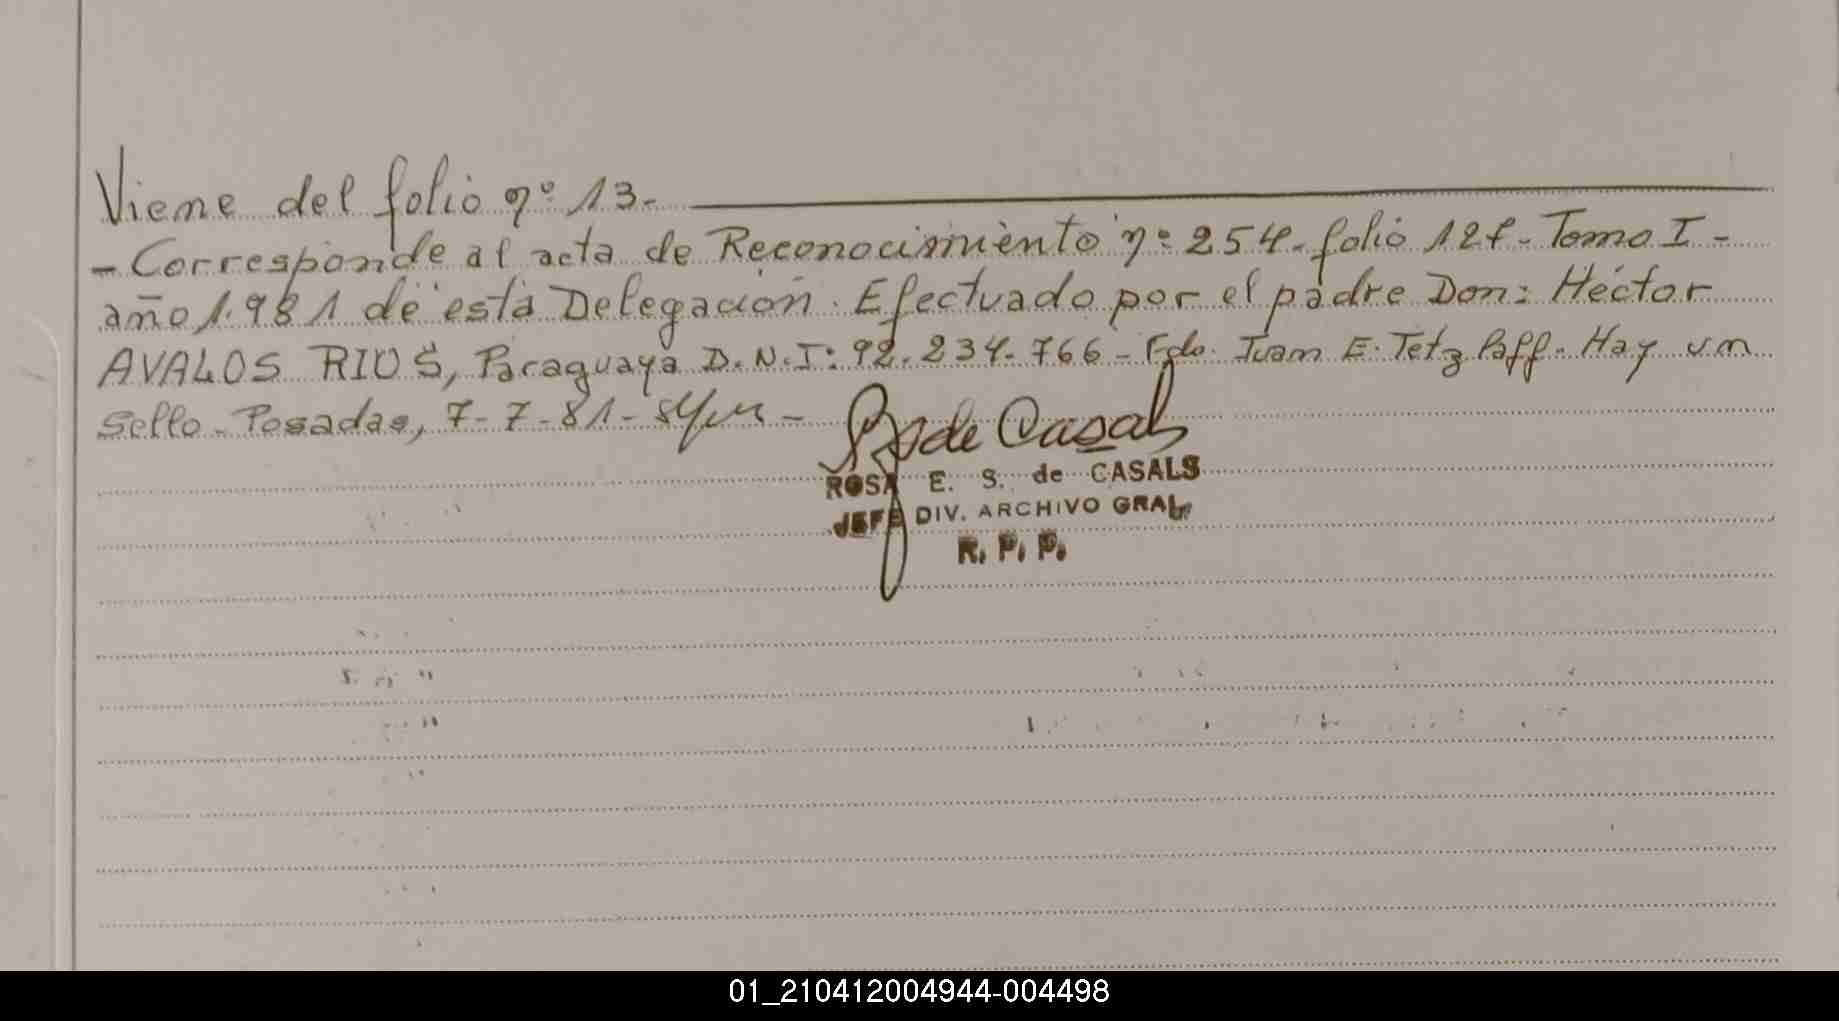 Viene del folio nº 13.
- Corresponde al acta de Reconocimiento nº 254. folio 127 - Tomo I -
año 1.981 de esta Delegación. Efectuado por el padre Don: Héctor
AVALOS RIOS, Paraguaya D.N.I: 92.234.766 - Fdo. Juan E. Tetzlaff. Hay un
Sello - Posadas, 7-7-81 -
ROSA E. S. de CASALS
JEFE DIV. ARCHIVO GRAL.
R. P. P.
01_210412004944-004498